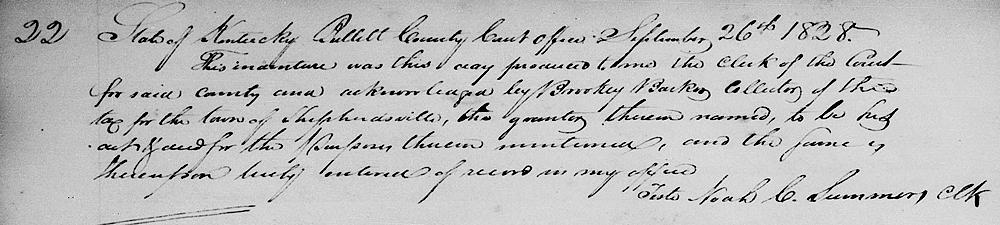 22 State of Kentucky Bullitt County Court office September 26th 1828.
This indenture was this day produced to me the Clerk of the Court
for said county and acknowledged by Brooks Barker Collector of the
tax for the town of Shepherdsville, the grantor therein named, to be his
act & deed for the purposes therein mentioned, and the same is
thereupon truly entered of record in my office
Teste Noah C. Summers, Clk